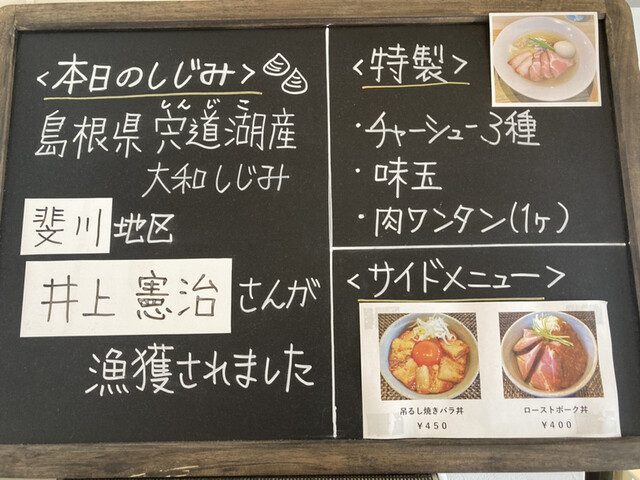 <本日のしじみ>
しんじこ
島根県 宍道湖産
大和しじみ
斐川地区
井上 憲治さんが
漁獲されました
<特製>
・チャーシュー3種
・味玉
・肉ワンタン(1ヶ)
<サイドメニュー>
吊るし焼きバラ丼
¥450
ローストポーク丼
¥400